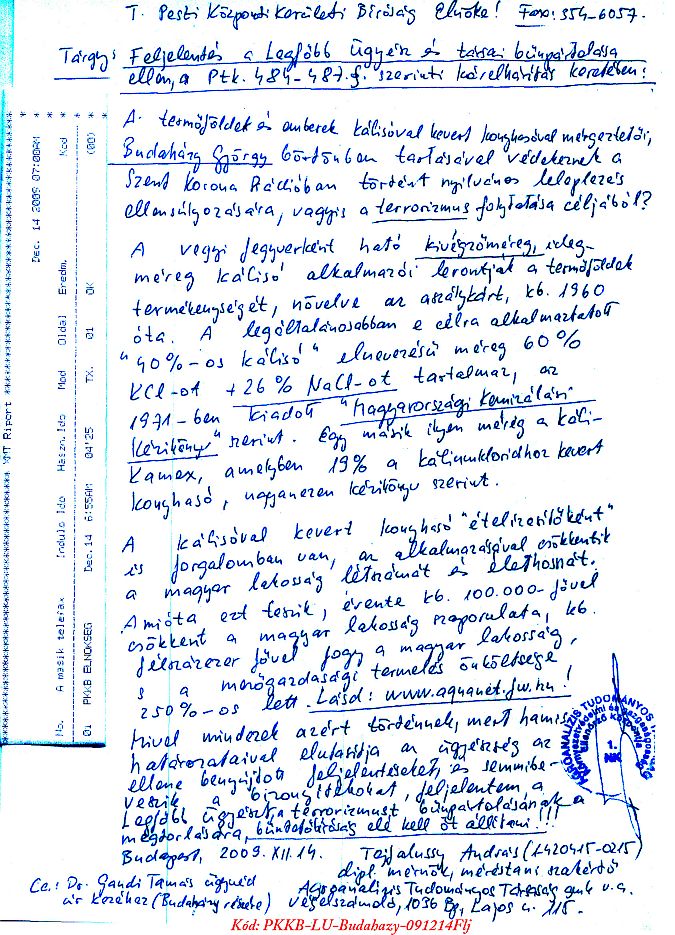 T. Pesti Központi Kerületi Bíróság Elnöke! Fax: 354-6057.
Tárgy: Feljelentés a Legfőbb Ügyész és társai bűnpártolása
ellen, a Ptk. 484-487.§. szerinti kárelhárítás keretében!
A termőföldek és emberek kálisóval kevert konyhasóval mérgeztetői,
Budaházy György börtönben tartásával védekeznek a
Szent Korona Rádióban történt nyilvános leleplezés
ellensúlyozására, vagyis a terrorizmus folytatása céljából?
A vegyi fegyverként ható kivégzőméreg, ideg-
méreg kálisó alkalmazói lerontják a termőföldek
termékenységét, növelve az aszálykárt, kb. 1960
óta. A legáltalánosabban e célra alkalmaztatott
"40%-os kálisó" elnevezésű méreg 60%
KCl-ot +26% NaCl-ot tartalmaz, az
1971-ben kiadott "Magyarországi Kemizálási
Kézikönyv" szerint. Egy másik ilyen méreg a káli-
Kamex, amelyben 19% a káliumkloridhoz kevert
konyhasó, ugyanezen kézikönyv szerint.
A kálisóval kevert konyhasó "ételízesítőként"
is forgalomban van, az alkalmazásával csökkentik
a magyar lakosság létszámát és élethosszát.
Amióta ezt teszik, évente kb. 100.000-fővel
csökkent a magyar lakosság szaporulata, kb.
félszázezer fővel fogy a magyar lakosság,
s a mezőgazdasági termelés önköltsége
250%-os lett. Lásd: www.aquanet.fw.hu!
Mivel mindezek azért történnek, mert hamis
határozataival elutasítja az ügyészség az
ellene benyújtott feljelentéseket, és semmibe-
veszik a bizonyítékokat, feljelentem a
Legfőbb Ügyészt, a terrorizmust bűnpártolásának a
megtorlására, büntetőbíróság elé kell őt állítani!!!
Budapest, 2009. XII. 14. Tejfalussy András (1420415-0215)
dipl. mérnök, méréstani szakértő
Cc.: Dr. Gaudi Tamás ügyvéd
úr kezéhez (Budaházy részére)
Agroanalízis Tudományos Társaság gmk v.a.
végelszámoló, 1036 Bp., Lajos u. 115.
AGROANALÍZIS TUDOMÁNYOS
1.
NK
Kód: PKKB-LU-Budahazy-091214Flj
Dec. 14 2009 07:00AM
MMT Riport
No. A masik telefax Indulo Ido Haszn.Ido Mod Oldal Eredm. Kod
01 PKKB ELNOKSEG Dec.14 6:55AM 04'25 TX. 01 OK (00)